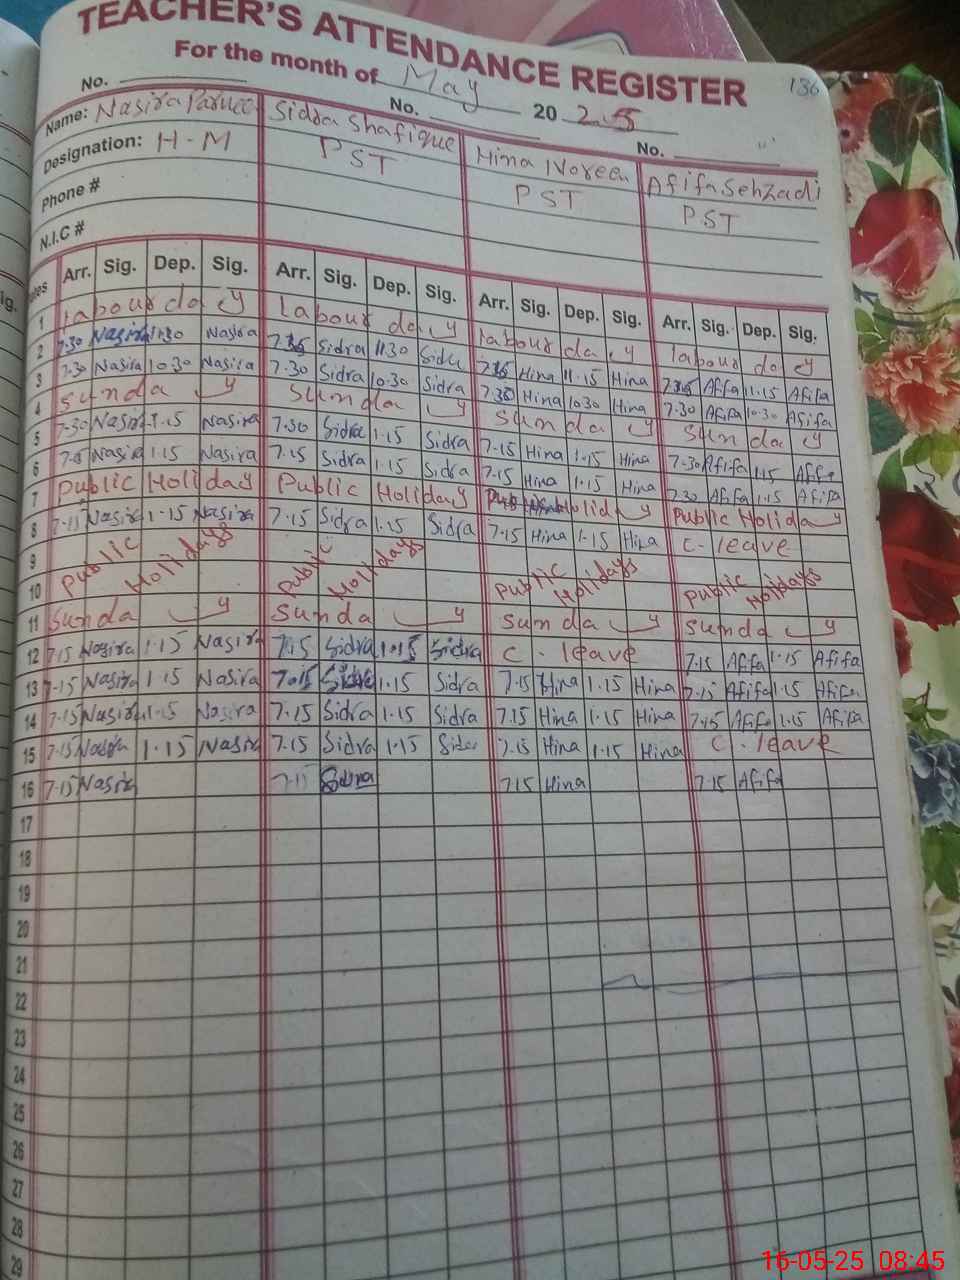 TEACHER'S ATTENDANCE REGISTER
136
For the month of May 2025
No. No. No.
Name: Nasira Sidra Shafique Hina Noreen Afifa Sehzadi
Designation: H-M PST PST PST
Phone #
N.I.C #
Arr. Sig. Dep. Sig. Arr. Sig. Dep. Sig. Arr. Sig. Dep. Sig. Arr. Sig. Dep. Sig.
1 labour day labour day labour day labour day
2 7.30 Nasira Nasira Sidra 11.30 Hina 11.15 Hina Afifa 11.15 Afifa
3 7.30 Nasira 10.30 Nasira 7.30 Sidra 10.30 Sidra 7.30 Hina 10.30 Hina 7.30 Afifa 10.30 Afifa
4 Sunday Sunday Sunday Sunday
5 7.30 Nasira 1.15 Nasira 7.30 Sidra 1.15 Sidra 7.15 Hina 1.15 Hina 7.30 Afifa 1.15 Afifa
6 Nasira 1.15 Nasira 7.15 Sidra 1.15 Sidra 7.15 Hina 1.15 Hina 7.30 Afifa 1.15 Afifa
7 Public Holiday Public Holiday Holiday Public Holiday
8 7.15 Nasira 1.15 Nasira 7.15 Sidra 1.15 Sidra 7.15 Hina 1.15 Hina C. leave
9 Public Holidays Public Holidays Public Holidays Public Holidays
10
11 Sunday Sunday Sunday Sunday
12 7.15 Nasira 1.15 Nasira 7.15 Sidra 1.15 Sidra C. leave 7.15 Afifa 1.15 Afifa
13 7.15 Nasira 1.15 Nasira 7.15 Sidra 1.15 Sidra 7.15 Hina 1.15 Hina 7.15 Afifa 1.15 Afifa
14 7.15 Nasira 1.15 Nasira 7.15 Sidra 1.15 Sidra 7.15 Hina 1.15 Hina 7.15 Afifa 1.15 Afifa
15 7.15 Nasira 1.15 Nasira 7.15 Sidra 1.15 Sidra 7.15 Hina 1.15 Hina C. leave
16 7.15 Nasira 7.15 Sidra 7.15 Hina 7.15 Afifa
17
18
19
20
21
22
23
24
25
26
27
28
29
16-05-25 08:45